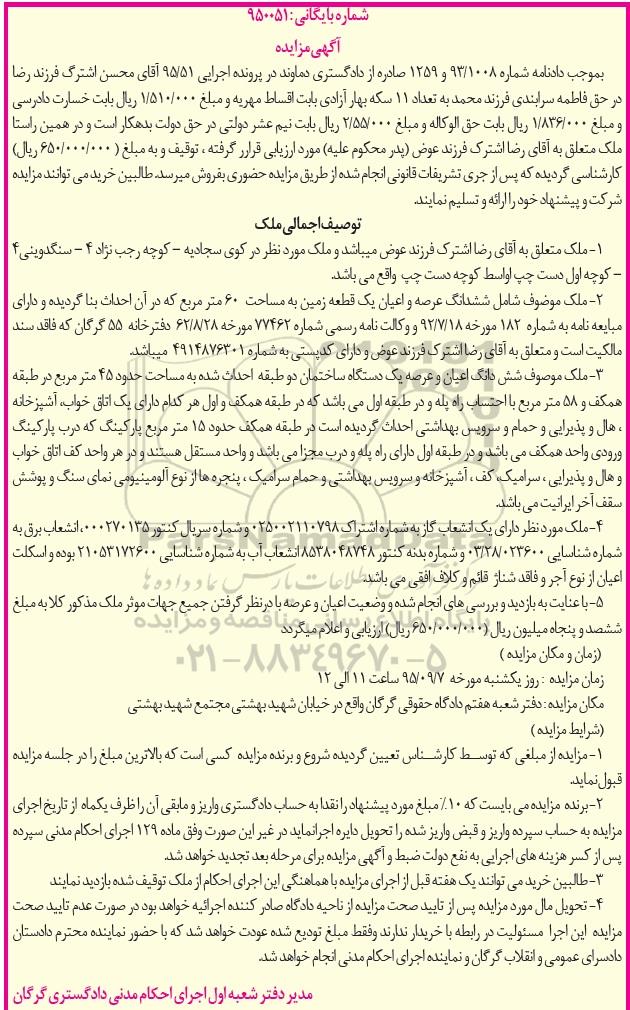 شماره بایگانی: ۹۵۰۰۵۱
آگهی مزایده
بموجب دادنامه شماره ۹۳/۱۰۰۸ و ۱۲۵۹ صادره از دادگستری دماوند در پرونده اجرایی ۹۵/۵۱ آقای محسن اشترگ فرزند رضا
در حق فاطمه سرابندی فرزند محمد به تعداد ۱۱ سکه بهار آزادی بابت اقساط مهریه و مبلغ ۱/۵۱۰/۰۰۰ ریال بابت خسارت دادرسی
و مبلغ ۱/۸۳۶/۰۰۰ ریال بابت حق الوکاله و مبلغ ۲/۵۵/۰۰۰ ریال بابت نیم عشر دولتی در حق دولت بدهکار است و در همین راستا
ملک متعلق به آقای رضا اشترک فرزند عوض (پدر محکوم علیه) مورد ارزیابی قرارر گرفته ، توقیف و به مبلغ ( ۶۵۰/۰۰۰/۰۰۰ ریال)
کارشناسی گردیده که پس از جری تشریفات قانونی انجام شده از طریق مزایده حضوری بفروش میرسد. طالبین خرید می توانند مزایده
شرکت و پیشنهاد خود را ارائه و تسلیم نمایند.
توصیف اجمالی ملک
۱- ملک متعلق به آقای رضا اشترک فرزند عوض میباشد و ملک مورد نظر در کوی سجادیه – کوچه رجب نژاد ۴ – سنگدوینی ۴
– کوچه اول دست چپ اواسط کوچه دست چپ واقع می باشد.
۲- ملک موضوف شامل ششدانگ عرصه و اعیان یک قطعه زمین به مساحت ۶۰ متر مربع که در آن احداث بنا گردیده و دارای
مبایعه نامه به شماره ۱۸۲ مورخه ۹۲/۷/۱۸ و وکالت نامه رسمی شماره ۷۷۴۶۲ مورخه ۶۲/۸/۲۸ دفترخانه ۵۵ گرگان که فاقد سند
مالکیت است و متعلق به آقای رضا اشترک فرزند عوض و دارای کدپستی به شماره ۴۹۱۴۸۷۶۳۰۱ میباشد.
۳- ملک موصوف شش دانگ اعیان و عرصه یک دستگاه ساختمان دو طبقه احداث شده به مساحت حدود ۴۵ متر مربع در طبقه
همکف و ۵۸ متر مربع با احتساب راه پله و در طبقه اول می باشد که در طبقه همکف و اول هر کدام دارای یک اتاق خواب، آشپزخانه
، هال و پذیرایی و حمام و سرویس بهداشتی احداث گردیده است در طبقه همکف حدود ۱۵ متر مربع پارکینگ که درب پارکینگ
ورودی واحد همکف می باشد و در طبقه اول دارای راه پله و درب مجزا می باشد و واحد مستقل هستند و در هر واحد کف اتاق خواب
و هال و پذیرایی ، سرامیک، کف ، آشپزخانه و سرویس بهداشتی و حمام سرامیک ، پنجره ها از نوع آلومینیومی نمای سنگ و پوشش
سقف آخر ایرانیت می باشد.
۴- ملک مورد نظر دارای یک انشعاب گاز به شماره اشتراک ۰۲۵۰۰۲۱۱۰۷۹۸ و شماره سریال کنتور ۰۰۰۲۷۰۱۳۵، انشعاب برق به
شماره شناسایی ۰۳/۲۸/۰۲۳۶۰۰ و شماره بدنه کنتور ۸۵۳۸۰۴۸۷۴۸ انشعاب آب به شماره شناسایی ۲۱۰۵۳۱۷۲۶۰۰ بوده و اسکلت
اعیان از نوع آجر و فاقد شناژ قائم و کلاف افقی می باشد.
۵- با عنایت به بازدید و بررسی های انجام شده و وضعیت اعیان و عرصه با درنظر گرفتن جمیع جهات موثر ملک مذکور کلا به مبلغ
ششصد و پنجاه میلیون ریال (۶۵۰/۰۰۰/۰۰۰ ریال) ارزیابی و اعلام میگردد
(زمان و مکان مزایده )
زمان مزایده : روز یکشنبه مورخه ۹۵/۰۹/۷ ساعت ۱۱ الی ۱۲
مکان مزایده: دفتر شعبه هفتم دادگاه حقوقی گرگان واقع در خیابان شهید بهشتی مجتمع شهید بهشتی
(شرایط مزایده )
۱- مزایده از مبلغی که توسط کارشناس تعیین گردیده شروع و برنده مزایده کسی است که بالاترین مبلغ را در جلسه مزایده
قبول نماید.
۲- برنده مزایده می بایست که ۱۰٪ مبلغ مورد پیشنهاد را نقدا به حساب دادگستری واریز و مابقی آن را ظرف یکماه از تاریخ اجرای
مزایده به حساب سپرده واریز و قبض واریز شده را تحویل دایره اجرانماید در غیر این صورت وفق ماده ۱۲۹ اجرای احکام مدنی سپرده
پس از کسر هزینه های اجرایی به نفع دولت ضبط و آگهی مزایده برای مرحله بعد تجدید خواهد شد.
۳- طالبین خرید می توانند یک هفته قبل از اجرای مزایده با هماهنگی این اجرای احکام از ملک توقیف شده بازدید نمایند
۴- تحویل مال مورد مزایده پس از تایید صحت مزایده از ناحیه دادگاه صادر کننده اجرائیه خواهد بود در صورت عدم تایید صحت
مزایده این اجرا مسئولیت در رابطه با خریدار ندارند وفقط مبلغ تودیع شده عودت خواهد شد که با حضور نماینده محترم دادستان
دادسرای عمومی و انقلاب گرگان و نماینده اجرای احکام مدنی انجام خواهد شد.
مدیر دفتر شعبه اول اجرای احکام مدنی دادگستری گرگان
ParsNamadData
پایگاه اطلاع رسانی مناقصه و مزایده
۰۲۱-۸۸۳۴۹۶۷۰-۵